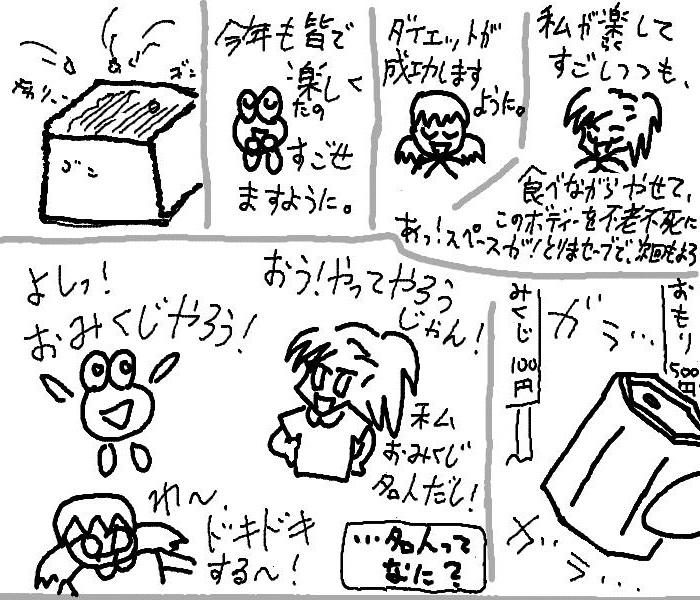 ゴン
今年も皆で
楽しく
すごせ
ますように。
ダイエットが
成功します
ように。
私が楽して
すごしつつも、
食べながらやせて、
このボディーを不老不死に
あっ!スペースが!とりまセーブで、次回もよろ
よしっ!
おみくじやろう!
おう!やってやろう
じゃん!
私
おみくじ
名人だし!
わ〜、
ドキドキ
する〜!
…名人って
なに?
みくじ100円
おもり500円
ガ
ラ…
ガ…
ラ…